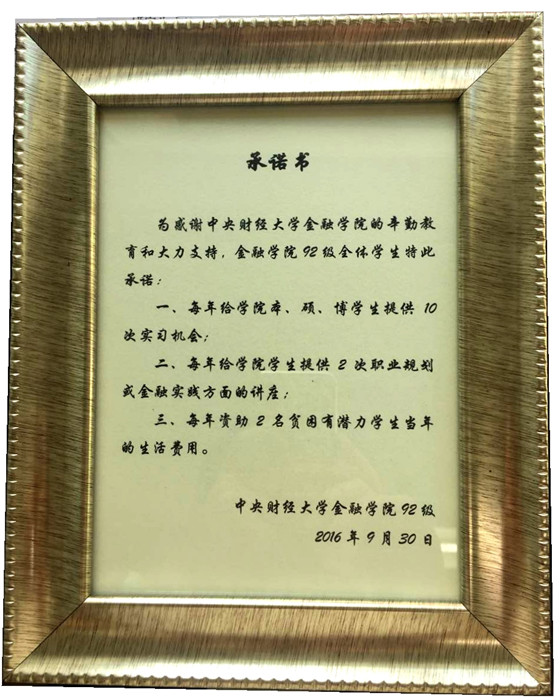 承诺书
为感谢中央财经大学金融学院的辛勤教
育和大力支持，金融学院92级全体学生特此
承诺：
一、每年给学院本、硕、博学生提供 10
次实习机会；
二、每年给学院学生提供 2 次职业规划
或金融实践方面的讲座；
三、每年资助 2 名贫困有潜力学生当年
的生活费用。
中央财经大学金融学院92级
2016 年 9 月 30 日